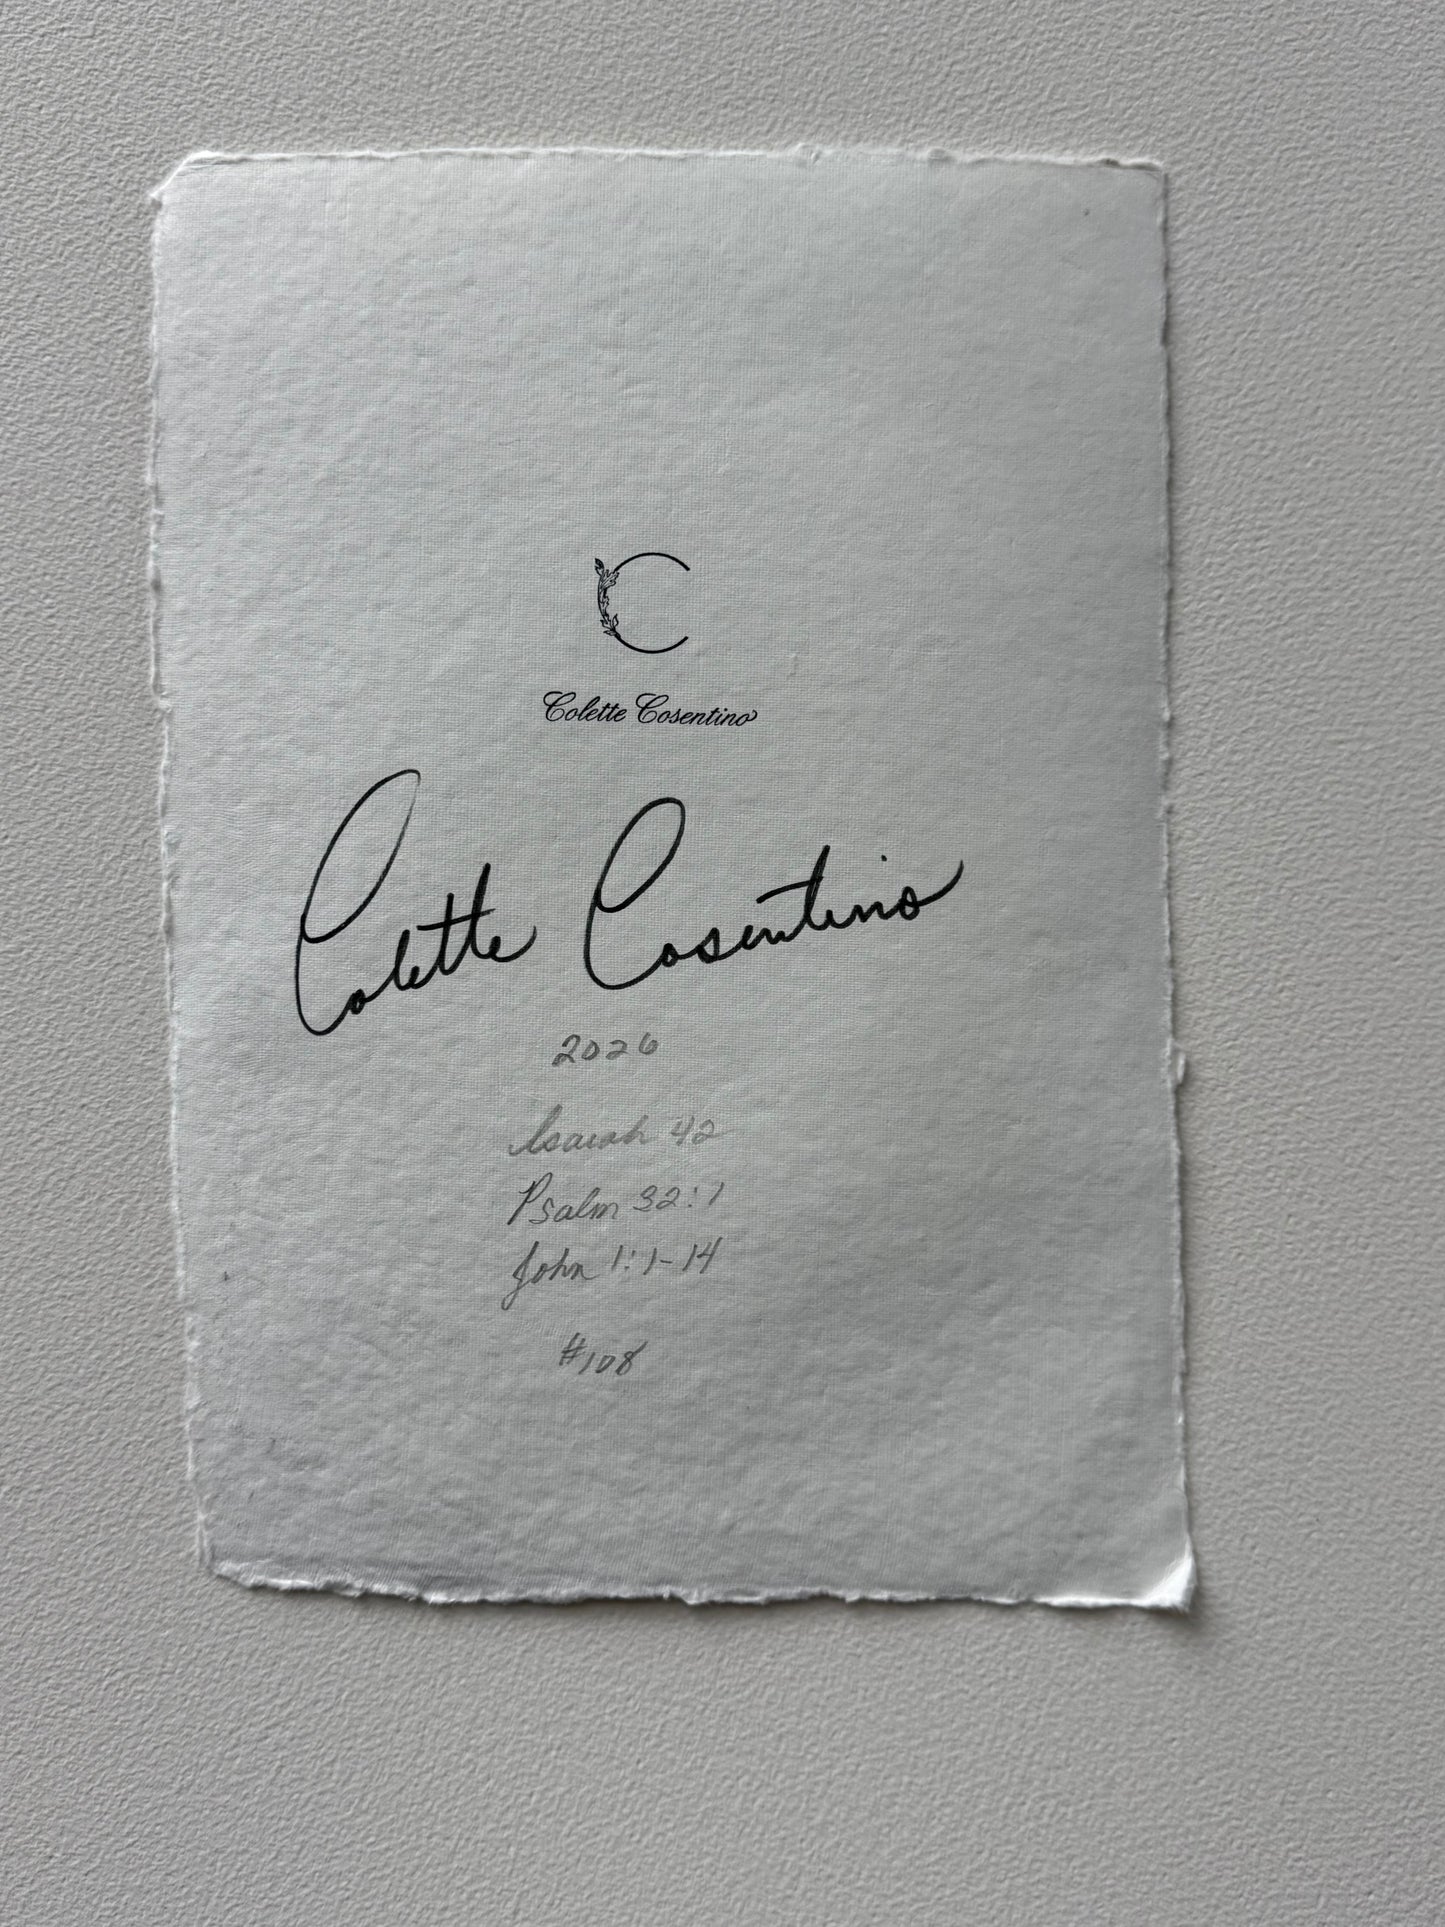 C
Colette Cosentino
Colette Cosentino
2026
Isaiah 42
Psalm 32:1
John 1:1-14
#108